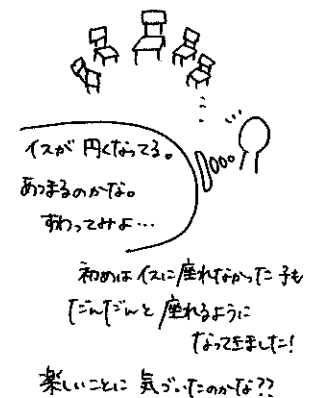 イスが 円くなってる。
あつまるのかな。
すわってみよ…
初めは イスに 座れなかった 子も
だんだんと 座れるように
なってきました!
楽しいことに 気づいたのかな??